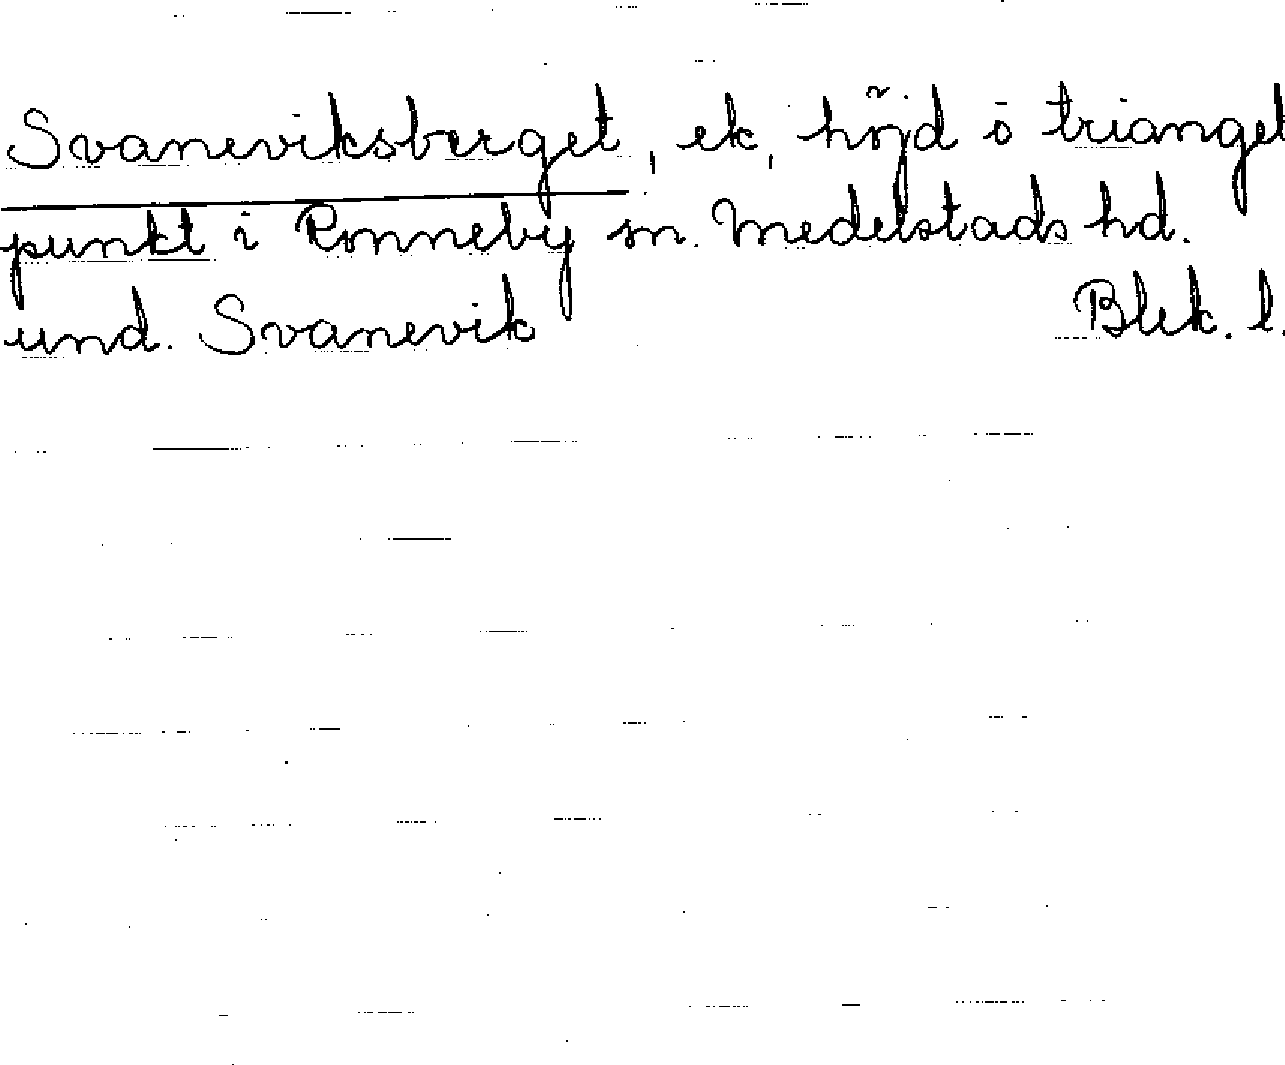 Svaneviksberget, ek, höjd o triangel
punkt i Ronneby sn. Medelstads hd.
und. Svanevik Blek. l.